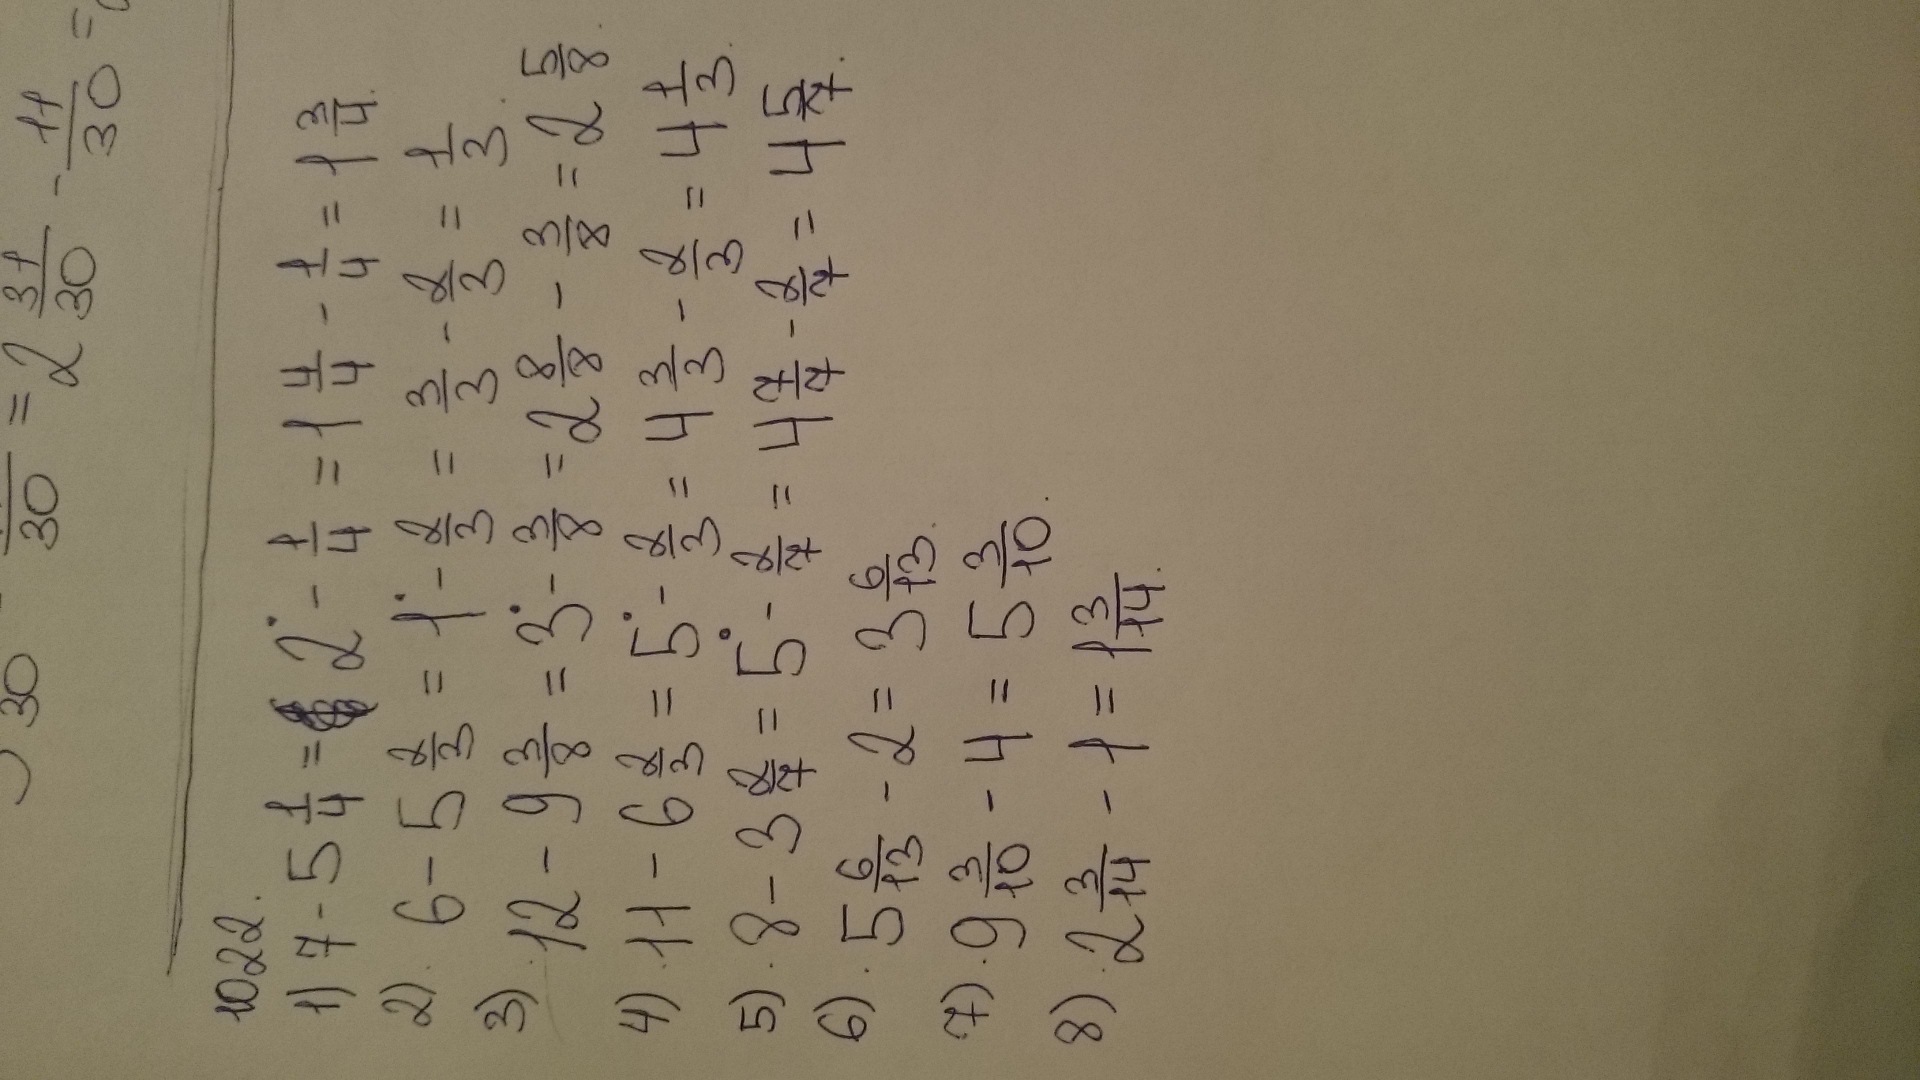 30 - /30 = 2 31/30 - 11/30 =
1022.
1) 7 - 5 1/4 = 2 - 1/4 = 1 4/4 - 1/4 = 1 3/4.
2). 6 - 5 2/3 = 1 - 2/3 = 3/3 - 2/3 = 1/3.
3). 12 - 9 3/8 = 3 - 3/8 = 2 8/8 - 3/8 = 2 5/8.
4). 11 - 6 2/3 = 5 - 2/3 = 4 3/3 - 2/3 = 4 1/3.
5). 8 - 3 2/7 = 5 - 2/7 = 4 7/7 - 2/7 = 4 5/7.
6). 5 6/13 - 2 = 3 6/13.
7). 9 3/10 - 4 = 5 3/10.
8). 2 3/14 - 1 = 1 3/14.